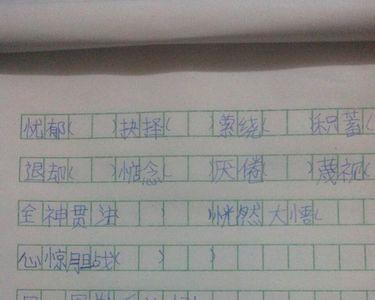 忧郁（ ）抉择（ ）萦绕（ ）积蓄（
退却（ ）惦念（ ）厌倦（ ）蔑视（
全神贯注（ ）恍然大悟（
心惊胆战（ ）